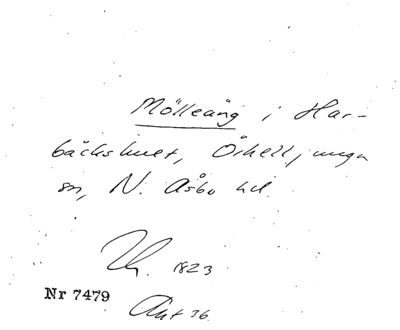 Mölleäng i Har-
bäckshult, Örkelljunga
sn, N. Åsbo hd.
1823
Nr 7479